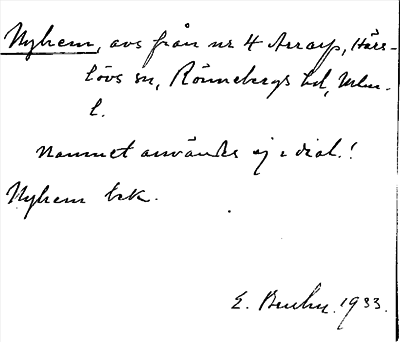 Nyhem, avs från nr 4 Asarp, Härs-
lövs sn, Rönnebergs hd, Mlm.
l.
Namnet användes ej i dial.!
Nyhem bek.
E. Bruhn. 1933.